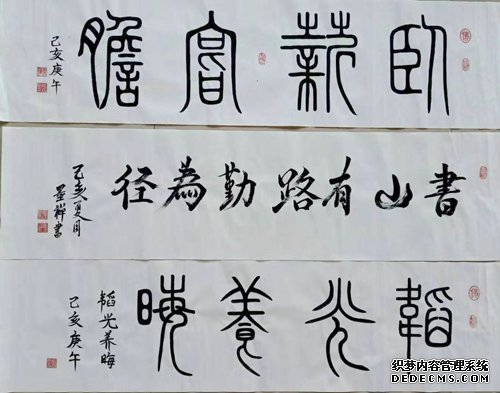 臥薪嘗膽
己亥庚午
書山有路勤為径
己亥夏月
祥書
韜光養晦
韬光养晦
己亥庚午
织梦内容管理系统
DEDECMS.COM